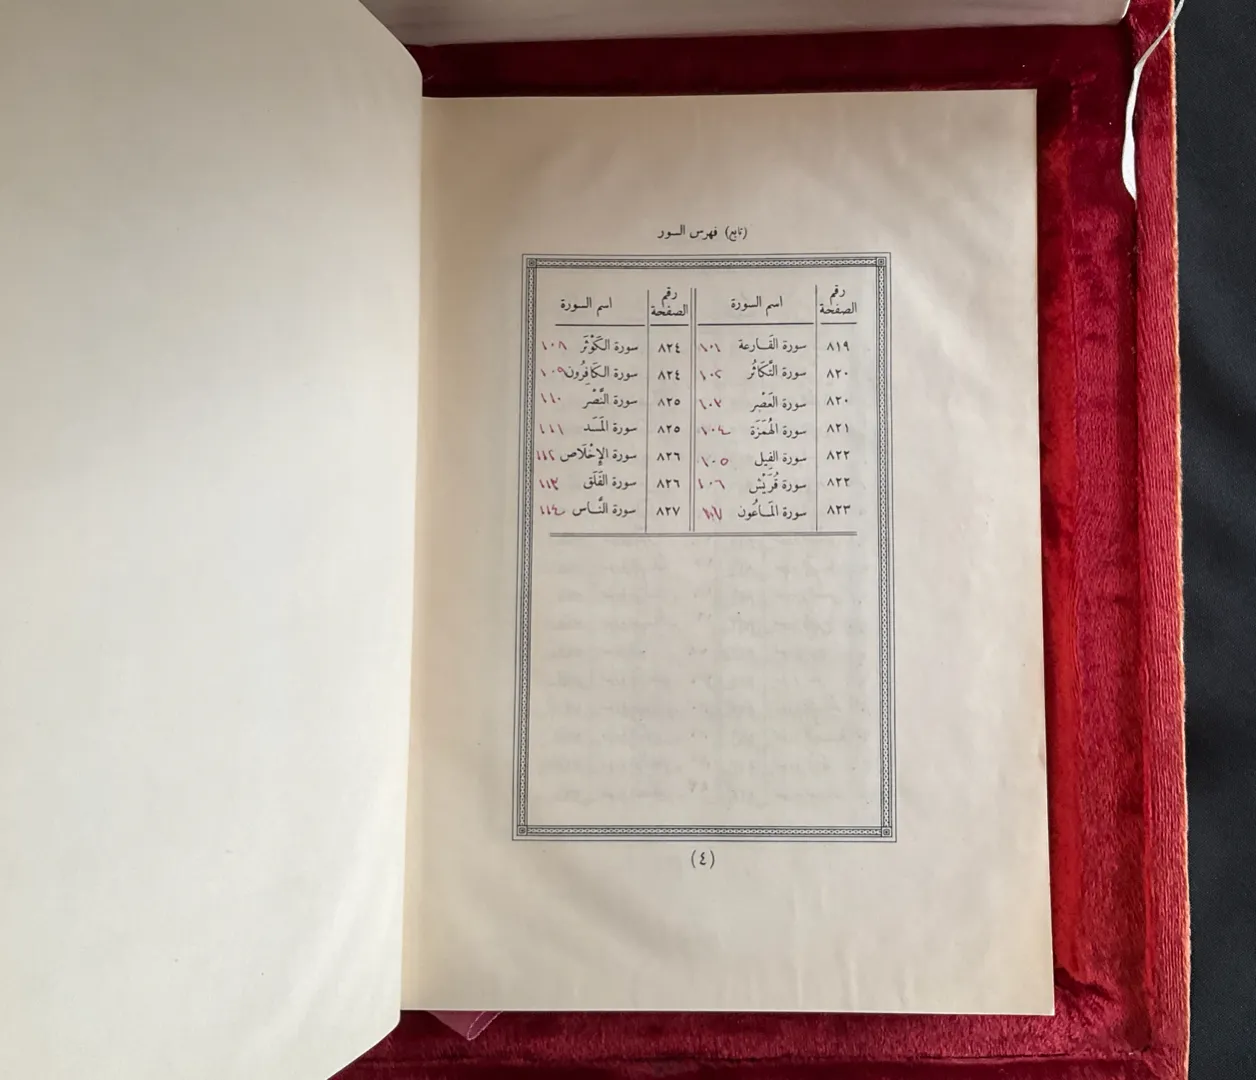 (تابع) فهرس السور
رقم الصفحة اسم السورة رقم الصفحة اسم السورة
٨١٩ سورة القَارعة ١٠١ ٨٢٤ سورة الكَوْثَر ١٠٨
٨٢٠ سورة التَّكَاثُر ١٠٢ ٨٢٤ سورة الكَافِرُون ١٠٩
٨٢٠ سورة العَصْر ١٠٣ ٨٢٥ سورة النَّصْر ١١٠
٨٢١ سورة الهُمَزَة ١٠٤ ٨٢٥ سورة المَسَد ١١١
٨٢٢ سورة الفِيل ١٠٥ ٨٢٦ سورة الإِخْلَاص ١١٢
٨٢٢ سورة قُرَيْش ١٠٦ ٨٢٦ سورة الفَلَق ١١٣
٨٢٣ سورة المَاعُون ١٠٧ ٨٢٧ سورة النَّاس ١١٤
(٤)